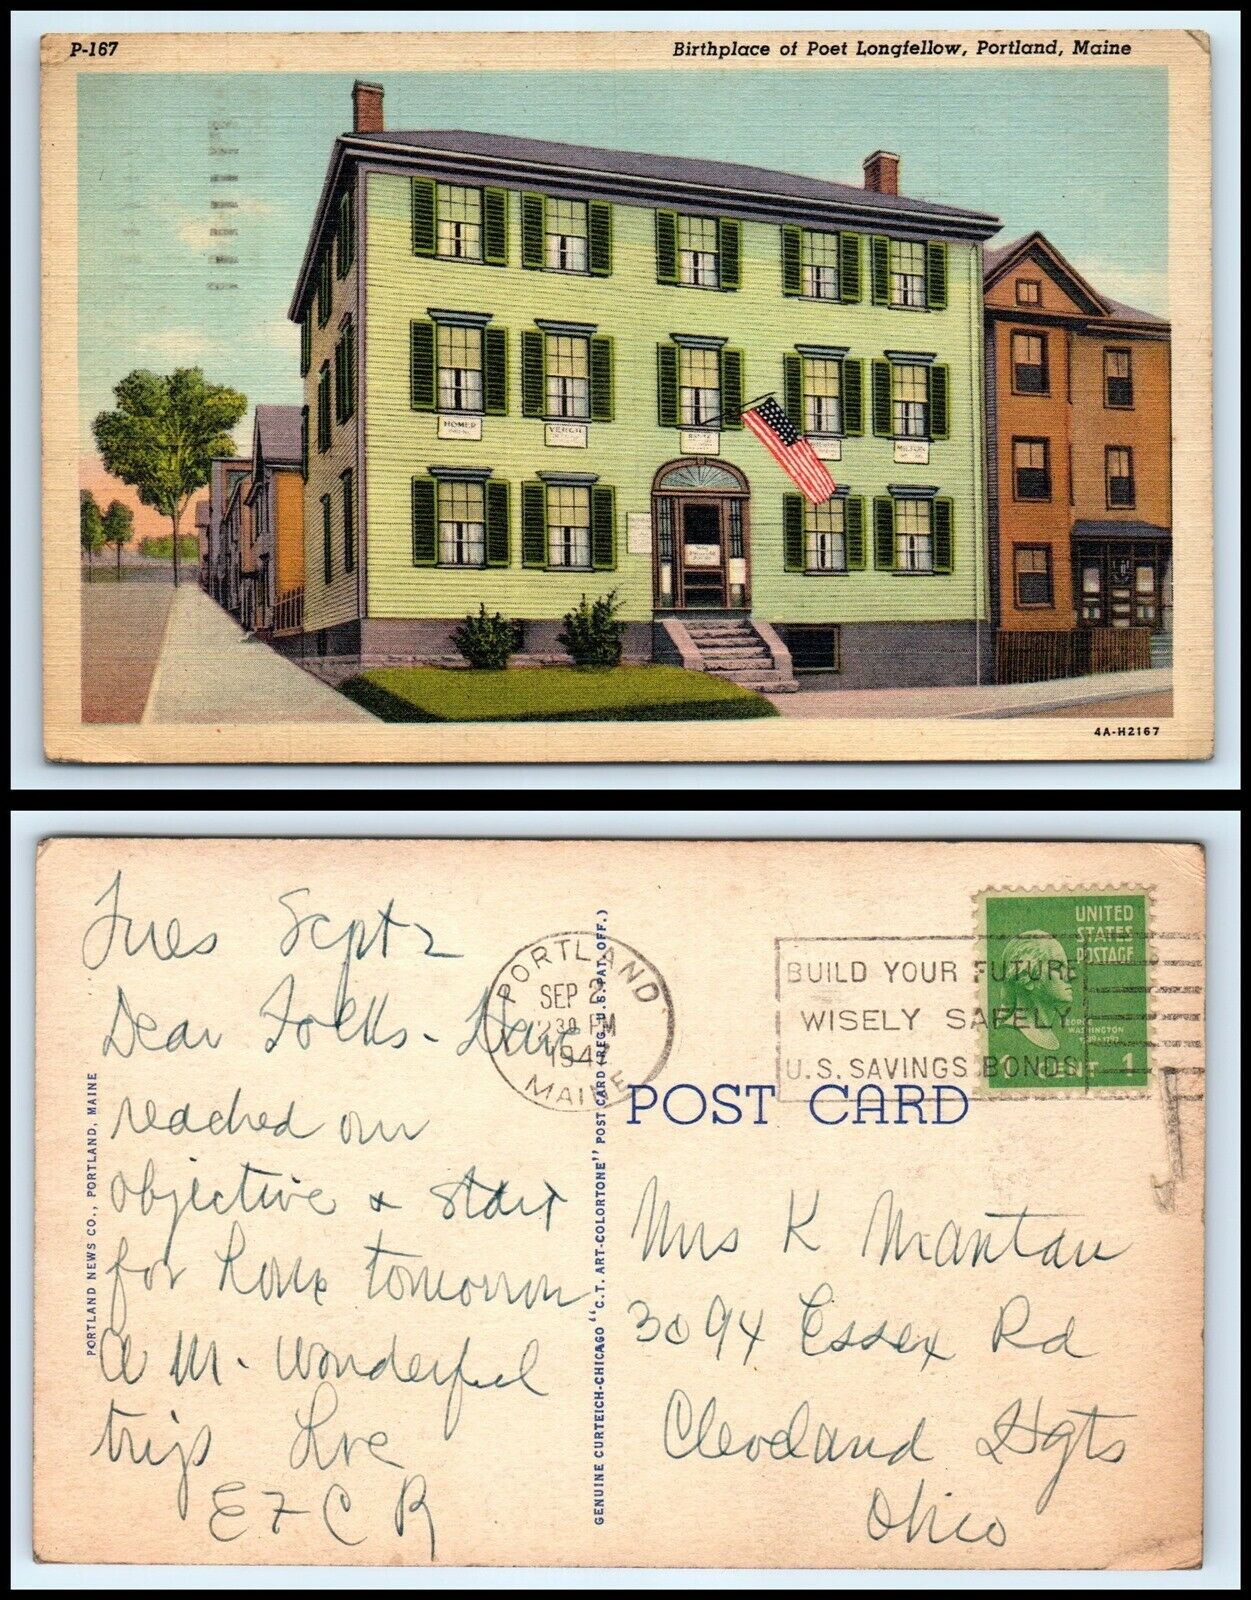 P-167
Birthplace of Poet Longfellow, Portland, Maine
HOMER
MILTON
4A-H2167
Tues Sept 2
Dear Folks - Have
reached our
objective & start
for home tomorrow
A M. Wonderful
trip Love
E F C R
PORTLAND NEWS CO., PORTLAND, MAINE
GENUINE CURTEICH-CHICAGO "C.T. ART-COLORTONE" POST CARD (REG. U.S. PAT. OFF.)
PORTLAND
SEP 2
30 PM
194
MAINE
BUILD YOUR FUTURE
WISELY SAFELY
U.S. SAVINGS BONDS
UNITED
STATES
POSTAGE
GEORGE
WASHINGTON
CENT 1
POST CARD
Mrs K Mantau
3094 Essex Rd
Cleveland Hgts
Ohio